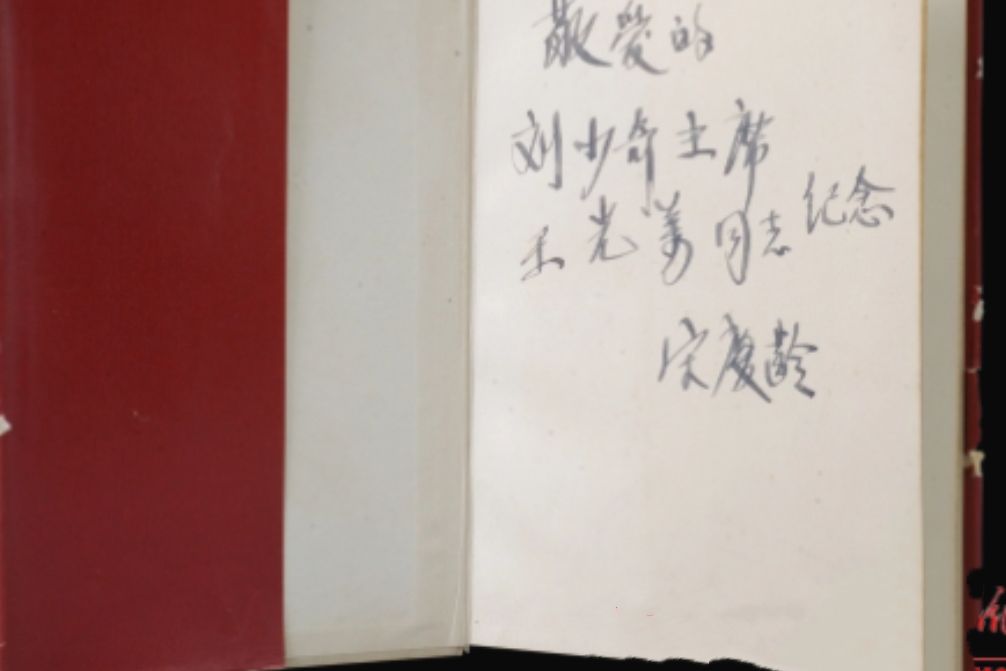 敬爱的
刘少奇主席
王光美同志 纪念
宋庆龄